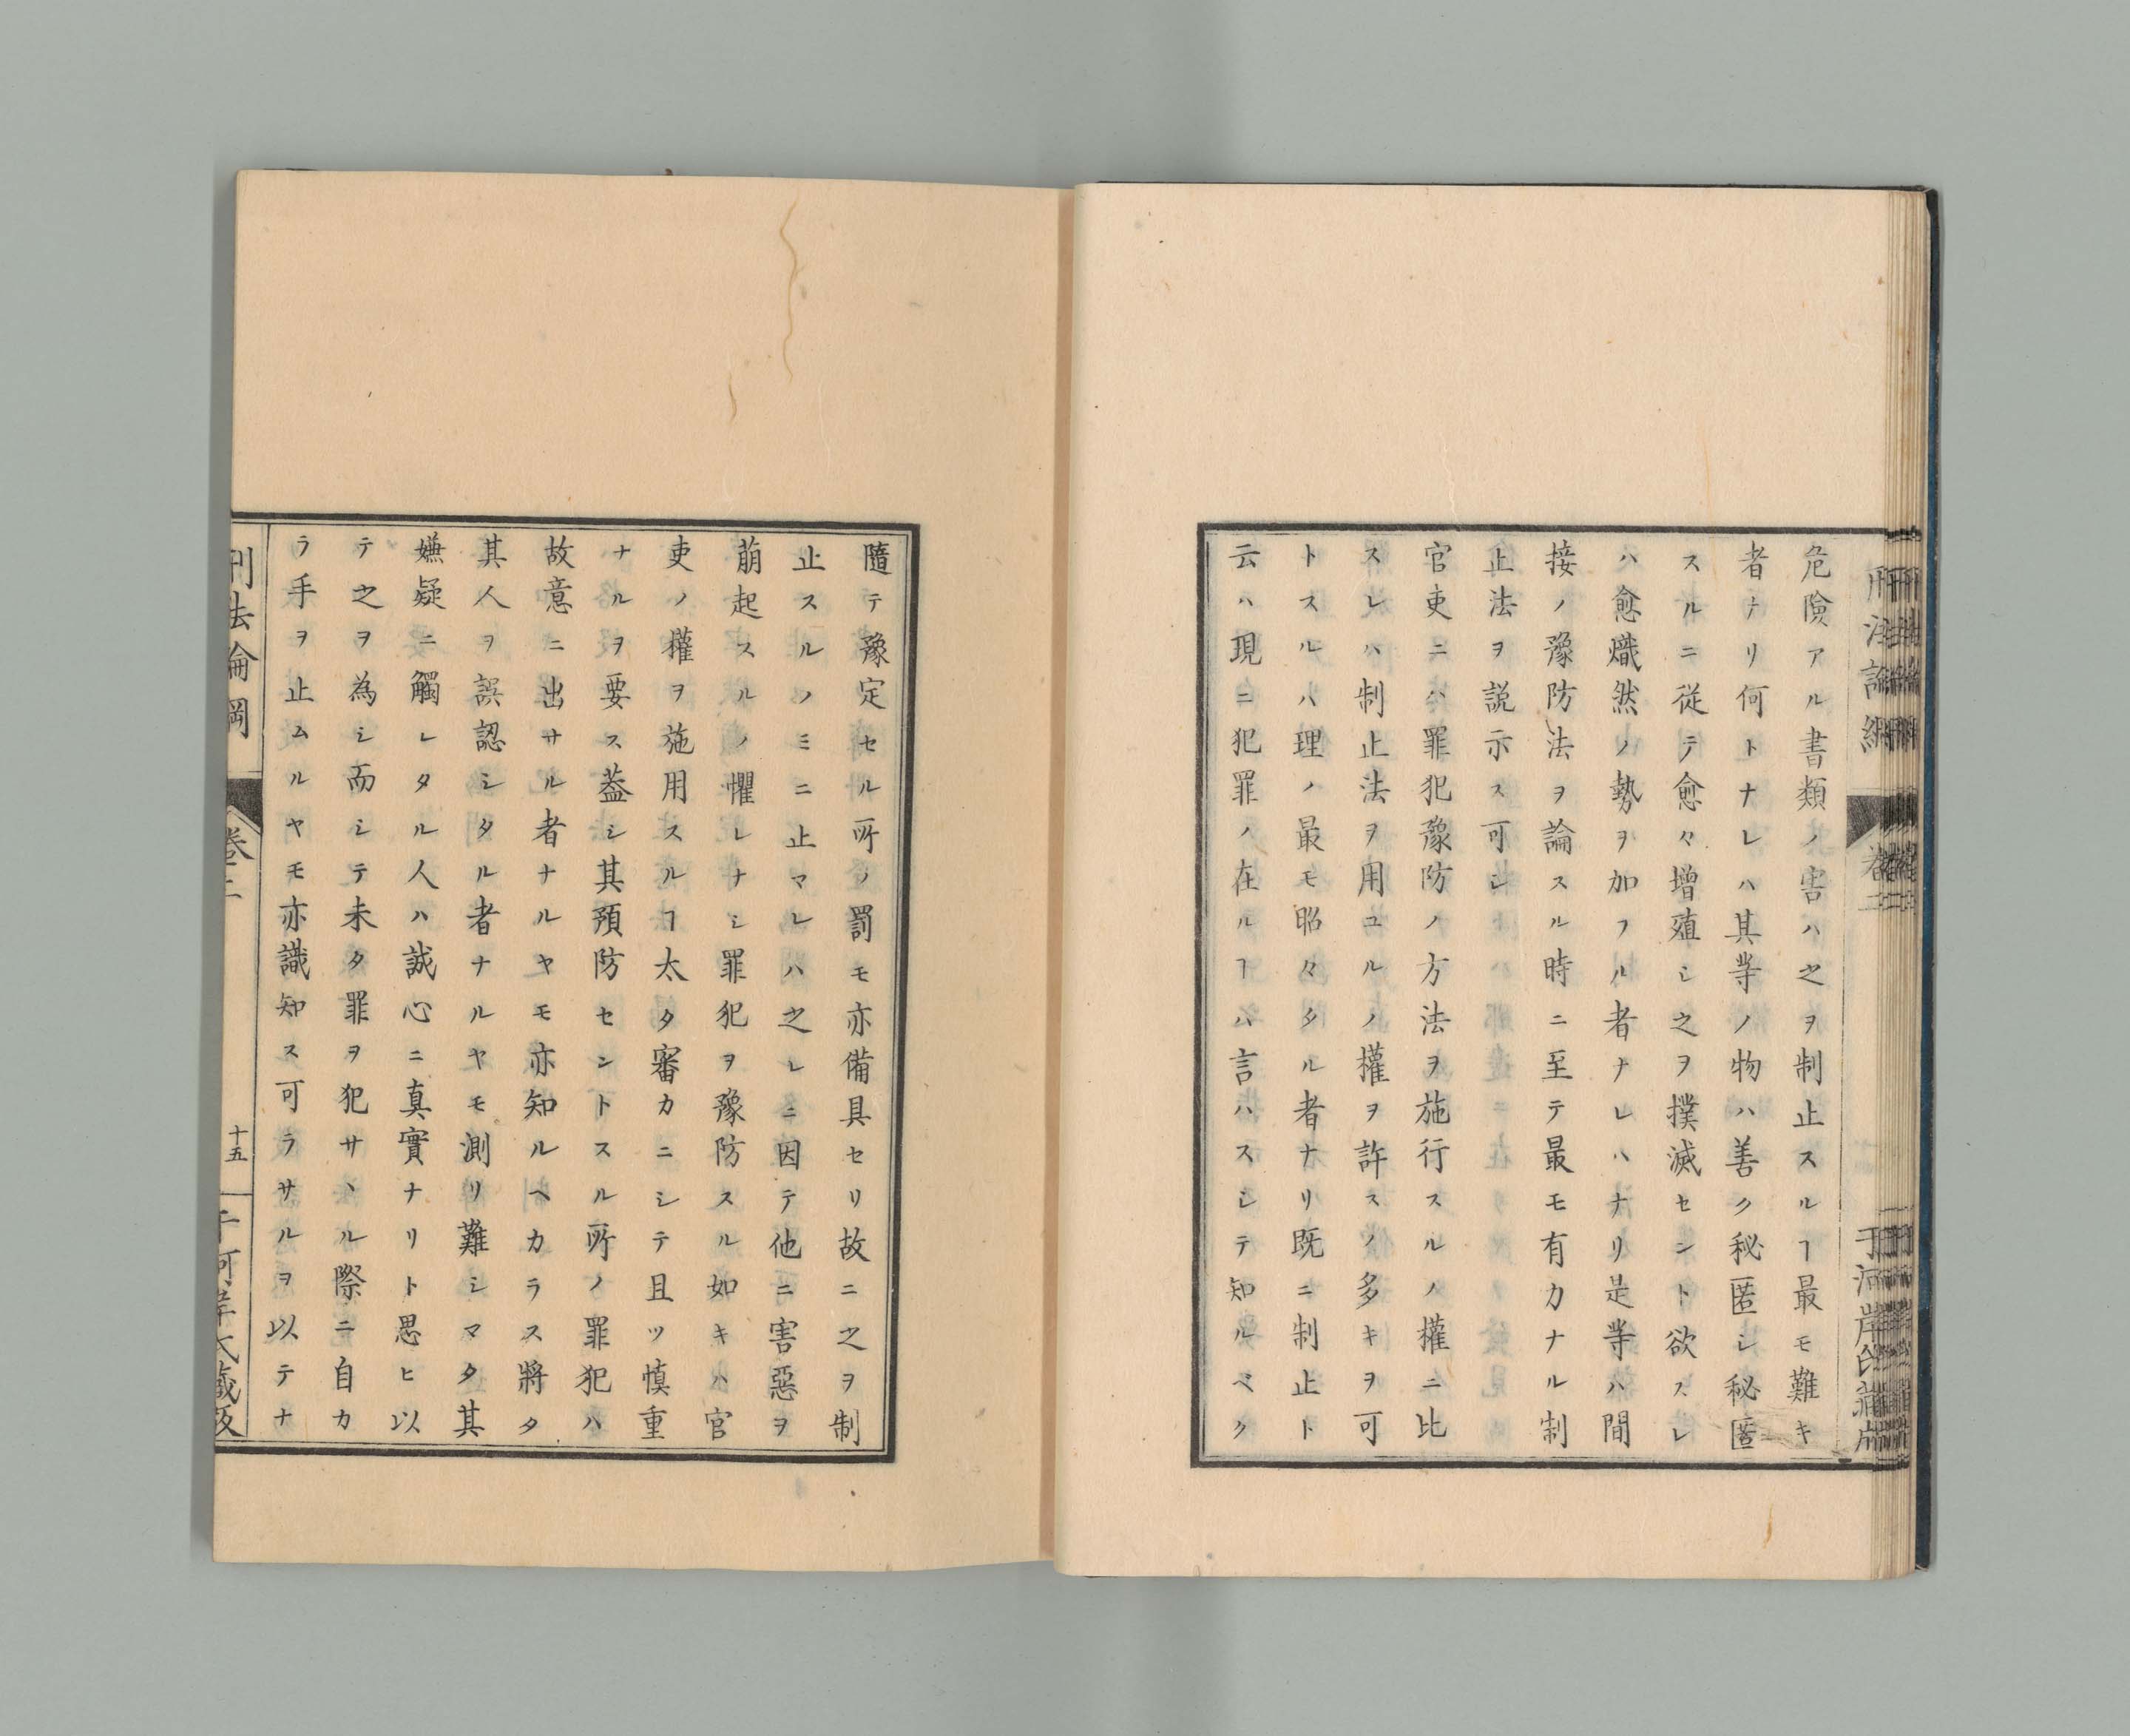 危險アル書類ノ害ハ之ヲ制止スルヿ最モ難キ
者ナリ何トナレハ其䓁ノ物ハ善ク秘匿シ秘匿
スルニ從テ愈々增殖シ之ヲ撲滅セント欲スレ
ハ愈熾然ノ勢ヲ加フル者ナレハナリ是䓁ハ間
接ノ豫防法ヲ論スル時ニ至テ最モ有力ナル制
止法ヲ説示ス可シ
官吏ニハ罪犯豫防ノ方法ヲ施行スルノ權ニ比
スレハ制止法ヲ用ユルノ權ヲ許スノ多キヲ可
トスルハ理ノ最モ昭々タル者ナリ既ニ制止ト
云ハ現ニ犯罪ノ在ルヿハ言ハスシテ知ルベク
隨テ豫定セル所ノ罰モ亦備具セリ故ニ之ヲ制
止スルノミニ止マレハ之レニ因テ他ニ害惡ヲ
萠起スルノ懼レナシ罪犯ヲ豫防スル如キハ官
吏ノ權ヲ施用スルヿ太タ審カニシテ且ツ慎重
ナルヲ要ス葢シ其預防セントスル所ノ罪犯ハ
故意ニ出サル者ナルヤモ亦知ルヘカラス將タ
其人ヲ誤認シタル者ナルヤモ測リ難シマタ其
嫌疑ニ觸レタル人ハ誠心ニ真實ナリト思ヒ以
テ之ヲ為シ而シテ未タ罪ヲ犯サヽル際ニ自カ
ラ手ヲ止ムルヤモ亦識知ス可ラサルヲ以テナ
刑法論綱
卷二
十五